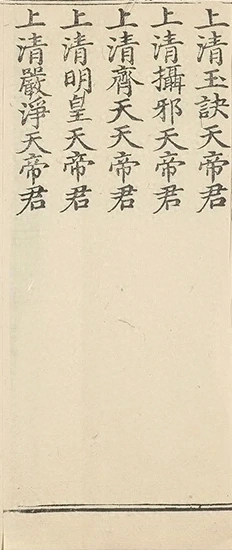 上清玉訣天帝君
上清攝邪天帝君
上清齊天天帝君
上清明皇天帝君
上清嚴淨天帝君